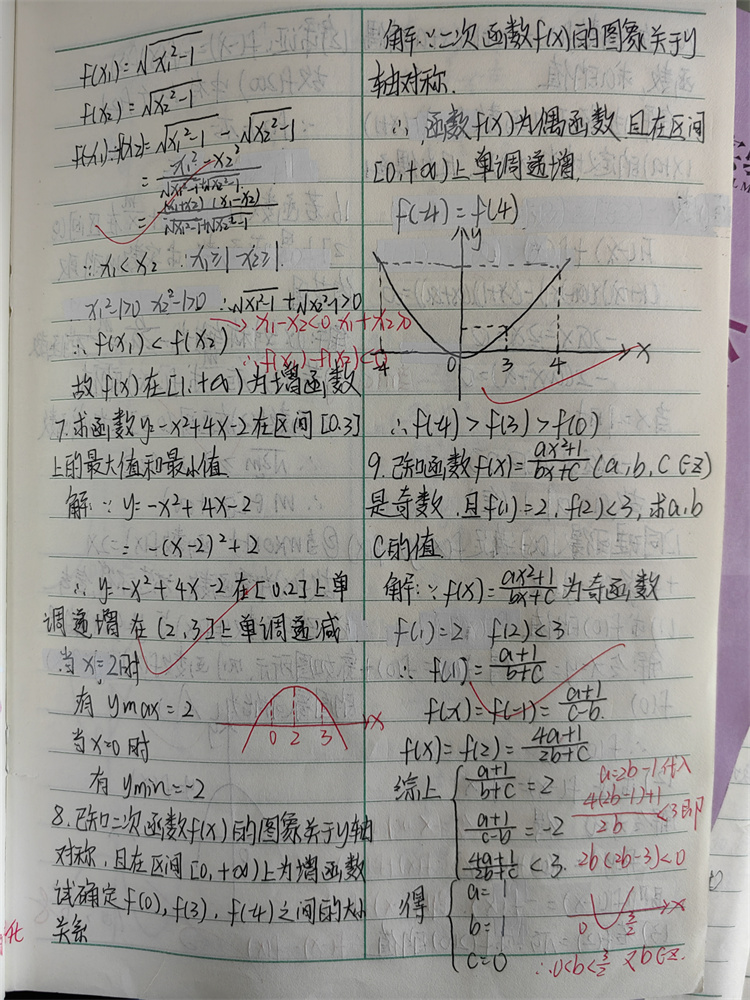 f(x₁)=√(x₁²-1)
f(x₂)=√(x₂²-1)
f(x₁)-f(x₂)=√(x₁²-1) - √(x₂²-1)
= (x₁²-x₂²)/(√(x₁²-1)+√(x₂²-1))
= (x₁+x₂)(x₁-x₂)/(√(x₁²-1)+√(x₂²-1))
∵ x₁<x₂ ∵x₁≥1 x₂≥1.
x₁²-1>0 x₂²-1>0 ∴√(x₁²-1)+√(x₂²-1)>0
→ x₁-x₂<0. x₁+x₂>0
∴ f(x₁)<f(x₂)
∴f(x₁)-f(x₂)<0
故f(x)在[1,+∞)为增函数
7.求函数y=-x²+4x-2在区间[0.3]
上的最大值和最小值.
解:∵ y=-x²+4x-2
= -(x-2)²+2
∴ y=-x²+4x-2在[0.2]上单
调递增在(2,3]上单调递减
当x=2时
有 ymax=2
当x=0时
有 ymin=-2
0 2 3 x
8.已知二次函数f(x)的图象关于y轴
对称,且在区间[0,+∞)上为增函数
试确定f(0),f(3),f(-4)之间的大小
关系
解:∵二次函数f(x)的图象关于y
轴对称.
∴ 函数f(x)为偶函数且在区间
[0,+∞)上单调递增,
f(-4)=f(4)
y
-4 0 3 4 x
∴f(-4)>f(3)>f(0)
9.已知函数f(x)=(ax²+1)/(bx+c)(a,b,c∈z)
是奇数,且f(1)=2,f(2)<3,求a,b
c的值.
解:∵f(x)=(ax²+1)/(bx+c)为奇函数
f(1)=2 f(2)<3
∴ f(1)=(a+1)/(b+c)
f(x)=f(-1)=(a+1)/(c-b)
f(x)=f(2)=(4a+1)/(2b+c)
综上 { (a+1)/(b+c)=2 a=2b-1代入
(a+1)/(c-b)=-2 (4(2b-1)+1)/2b<3即
(4a+1)/(2b+c)<3. 2b(2b-3)<0
得 { a=1
b=1 0 3/2 x
c=0 ∴0<b<3/2 又b∈z.